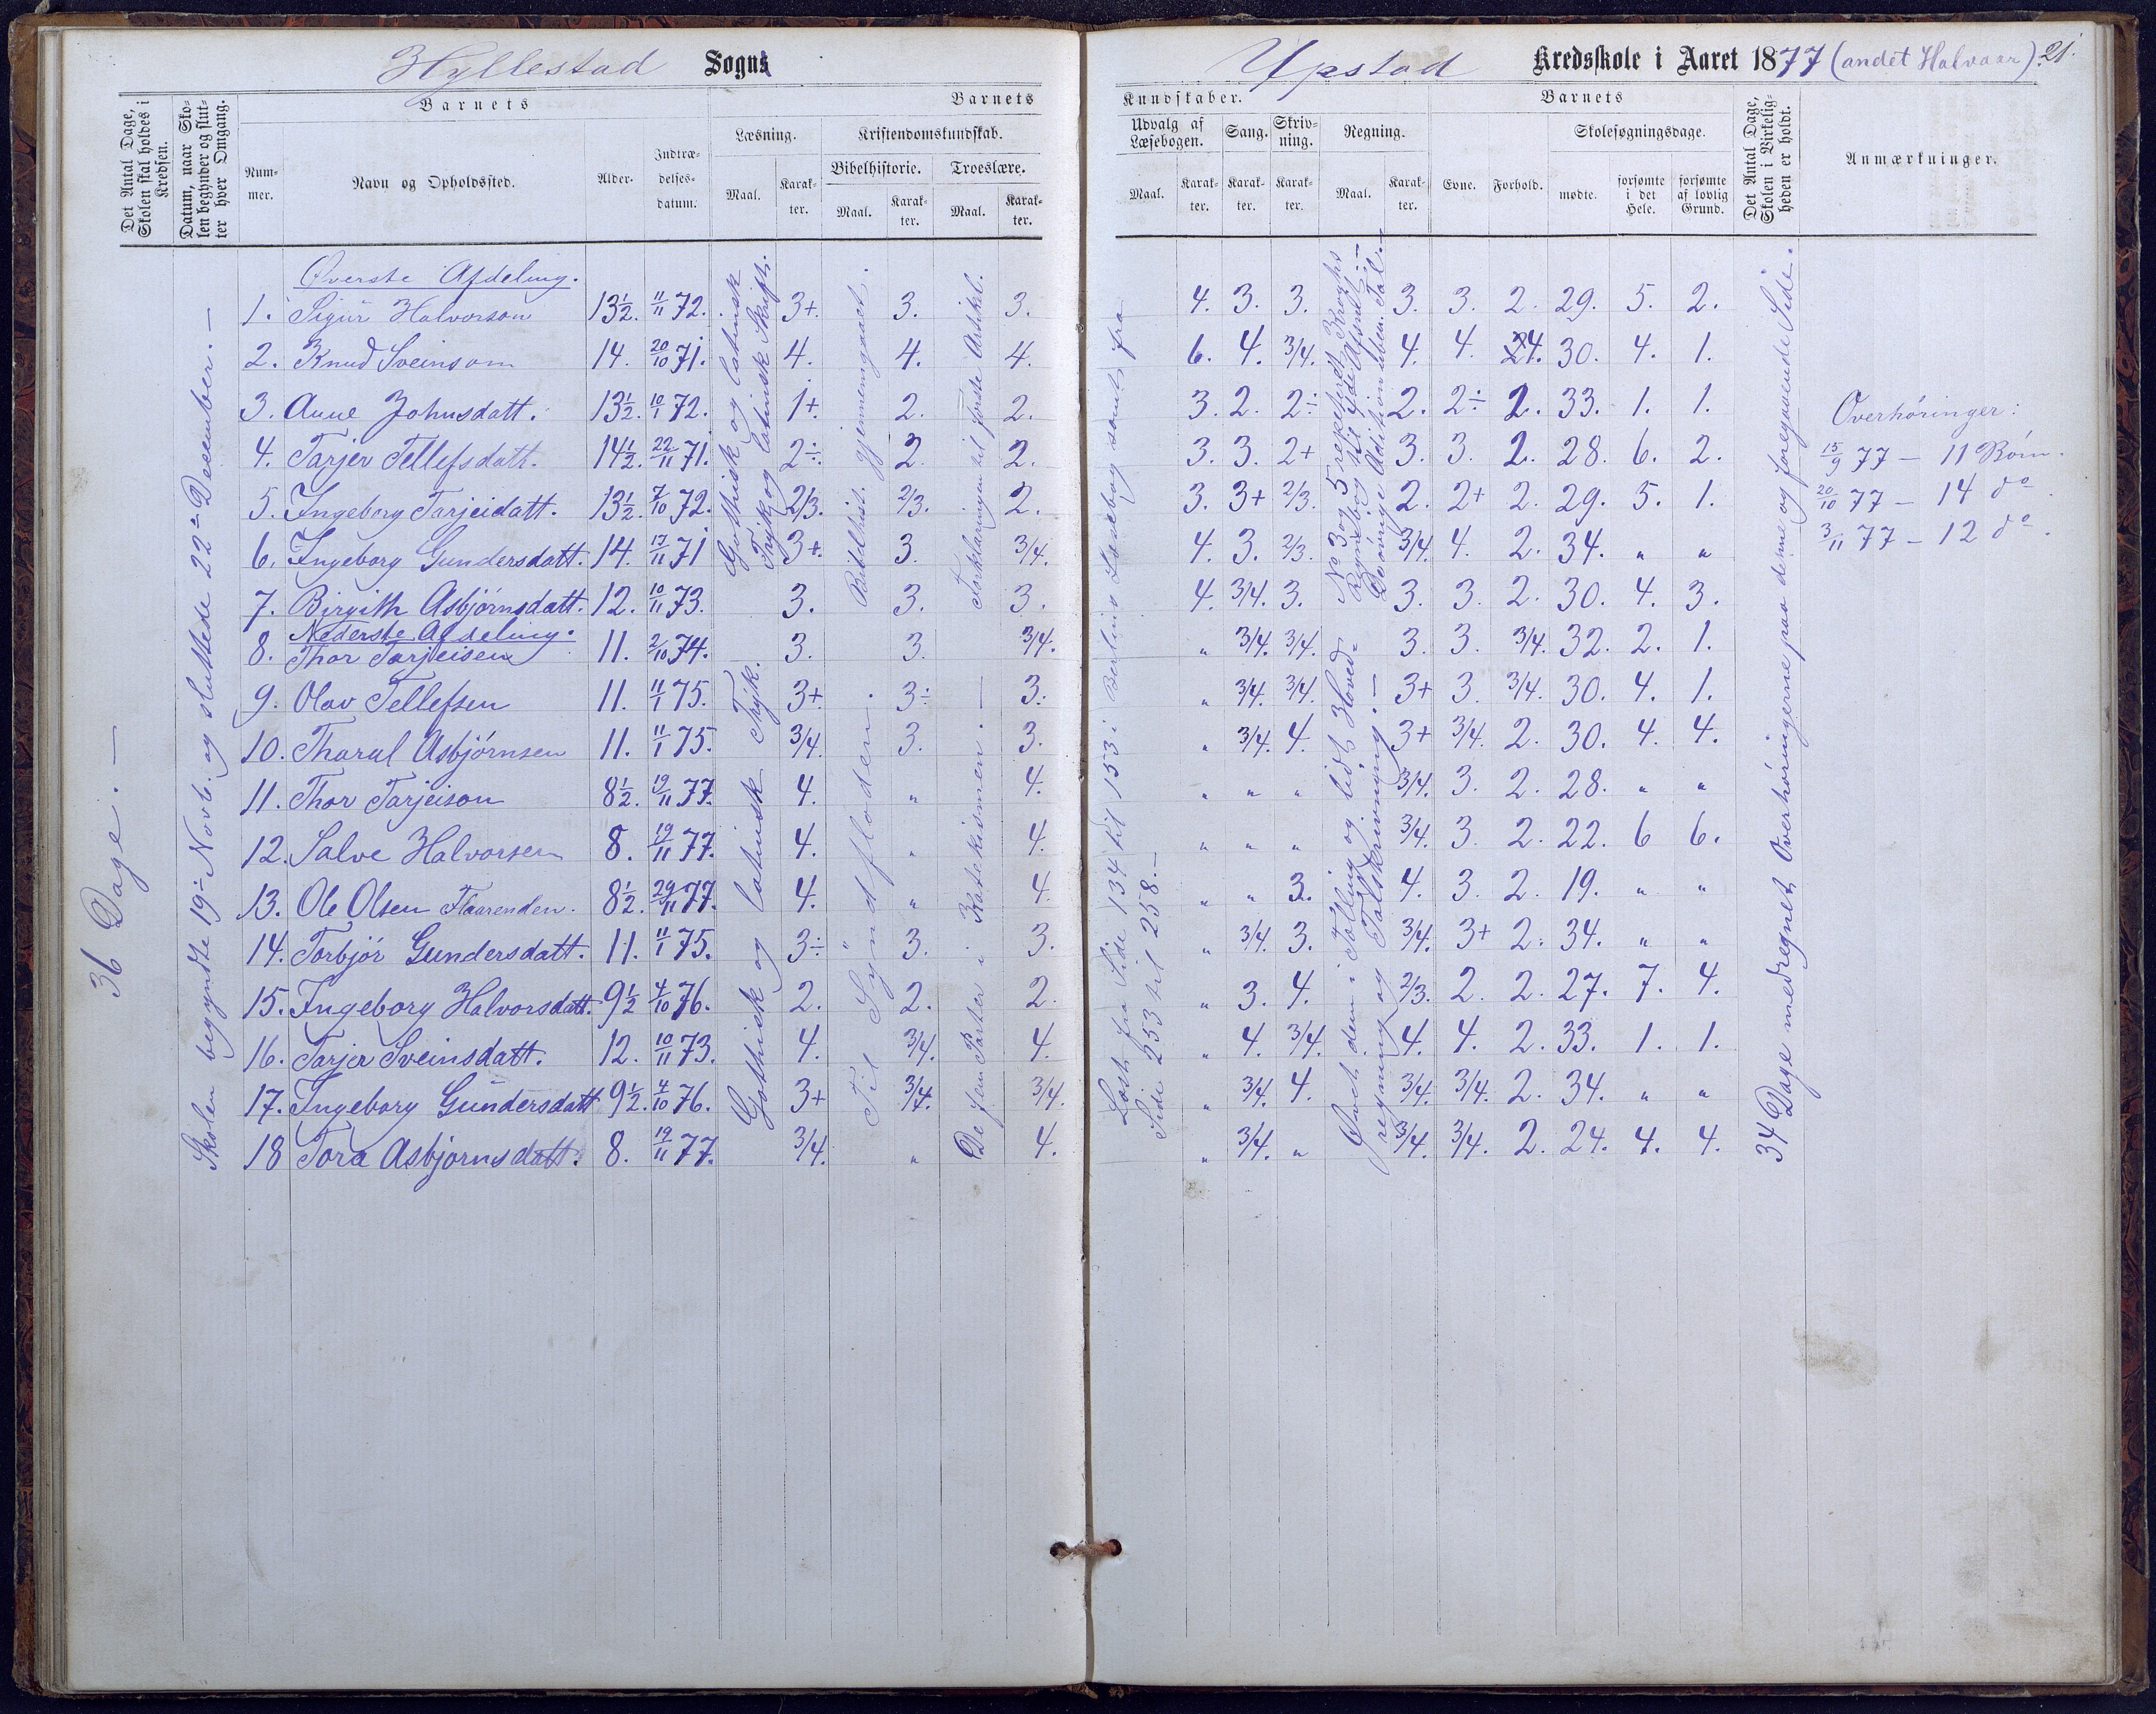 Hyllestad Sogns
Ypstad Kredsskole i Aaret 1877 (andet Halvaar). 21.
Det Antal Dage, Skolen skal holdes i Kredsen.
Datum, naar Skolen begynder og slutter hver Omgang.
Barnets
Nummer.
Navn og Opholdssted.
Alder.
Indtrædelsesdatum.
Barnets
Læsning.
Maal.
Karakter.
Kristendomskundskab.
Bibelhistorie.
Maal.
Karakter.
Troeslære.
Maal.
Karakter.
Kundskaber.
Udvalg af Læsebogen.
Maal.
Karakter.
Sang.
Karakter.
Skrivning.
Karakter.
Regning.
Maal.
Karakter.
Barnets
Evne.
Forhold.
Skolesøgningsdage.
mødte.
forsømte i det Hele.
forsømte af lovlig Grund.
Det Antal Dage, Skolen i Virkeligheden er holdt.
Anmærkninger.
36 Dage. —
Skolen begyndte 19de Novb. og sluttede 22de December. —
Øverste Afdeling.
1. Sigur Halvorson 13½. 11/11 72. 3+. 3. 3. 4. 3. 3. 3. 3. 2. 29. 5. 2.
2. Knud Sveinson 14. 20/10 71. 4. 4. 4. 6. 4. 3/4. 4. 4. 4. 30. 4. 1.
3. Anne Johnsdatt. 13½. 10/1 72. 1+. 2. 2. 3. 2. 2÷ 2. 2÷ 2. 33. 1. 1.
4. Tarjer Tellefsdatt. 14½. 22/11 71. 2÷. 2. 2. 3. 3. 2+ 3. 3. 2. 28. 6. 2.
5. Ingeborg Tarjeidatt. 13½. 7/10 72. 2/3. 2/3. 2. 3. 3+ 2/3. 2. 2+ 2. 29. 5. 1.
6. Ingeborg Gundersdatt. 14. 13/11 71 3+. 3. 3/4. 4. 3. 2/3. 3/4. 4. 2. 34. " "
7. Birgith Asbjørnsdatt. 12. 10/11 73. 3. 3. 3. 4. 3/4. 3. 3. 3. 2. 30. 4. 3.
Nederste Afdeling.
8. Thor Tarjeisen 11. 2/10 74. 3. 3. 3/4. " 3/4. 3/4. 3. 3. 3/4. 32. 2. 1.
9. Olav Tellefsen 11. 11/1 75. 3+. 3÷ 3. " 3/4. 3/4. 3+ 3. 3/4. 30. 4. 1.
10. Tharal Asbjørnsen 11. 11/1 75. 3/4. 3. 3. " 3/4. 4. 3+ 3/4. 2. 30. 4. 4.
11. Thor Tarjeison 8½. 19/11 77. 4. " 4. " " " 3/4. 3. 2. 28. " "
12. Salve Halvorsen 8. 19/11 77. 4. " 4. " " " 3/4. 3. 2. 22. 6 6.
13. Ole Olsen Flaarenden. 8½. 29/11 77. 4. " 4. " " 3. 4. 3. 2. 19. " "
14. Torbjør Gundersdatt. 11. 11/1 75. 3÷ 3. 3. " 3/4. 3. 3/4. 3+ 2. 34. " "
15. Ingeborg Halvorsdatt. 9½ 4/10 76. 2. 2. 2. " 3. 4. 2/3. 2. 2. 27. 7. 4.
16. Tarjer Sveinsdatt. 12. 10/11 73. 4. 3/4. 4. " 4. 3/4. 4. 4. 2. 33. 1. 1.
17. Ingeborg Gundersdatt 9½. 4/10 76. 3+ 3/4. 3/4. " 3/4. 4. 3/4. 3/4. 2. 34. " "
18 Tora Asbjørnsdatt. 8. 19/11 77. 3/4. " 4. " 3/4. " 3/4. 3/4. 2. 24. 4. 4.
Gothisk og latinsk
Tryk og latinsk Skrift.
Gothisk og latinsk Tryk.
Bibelhist. gjennemgaaet.
Til Syndfloden.
Forklaringen til første Artikl.
De fem Parter i Katekismen. —
Læst fra Side 134 til 153 i Læsebog samt fra
Side 253 til 258. —
No 3 og 5 repeterede Kroghs
Regnebog til 4de Afsnit. —
Øvet dem i Tælling og lidt Hoved=
regning og Talskrivning. —
34 Dage medregnet Overhøringerne paa denne og foregaaende Side.
Overhøringer:
15/9 77 — 11 Børn.
20/10 77 — 14 do.
3/11 77 — 12 do.